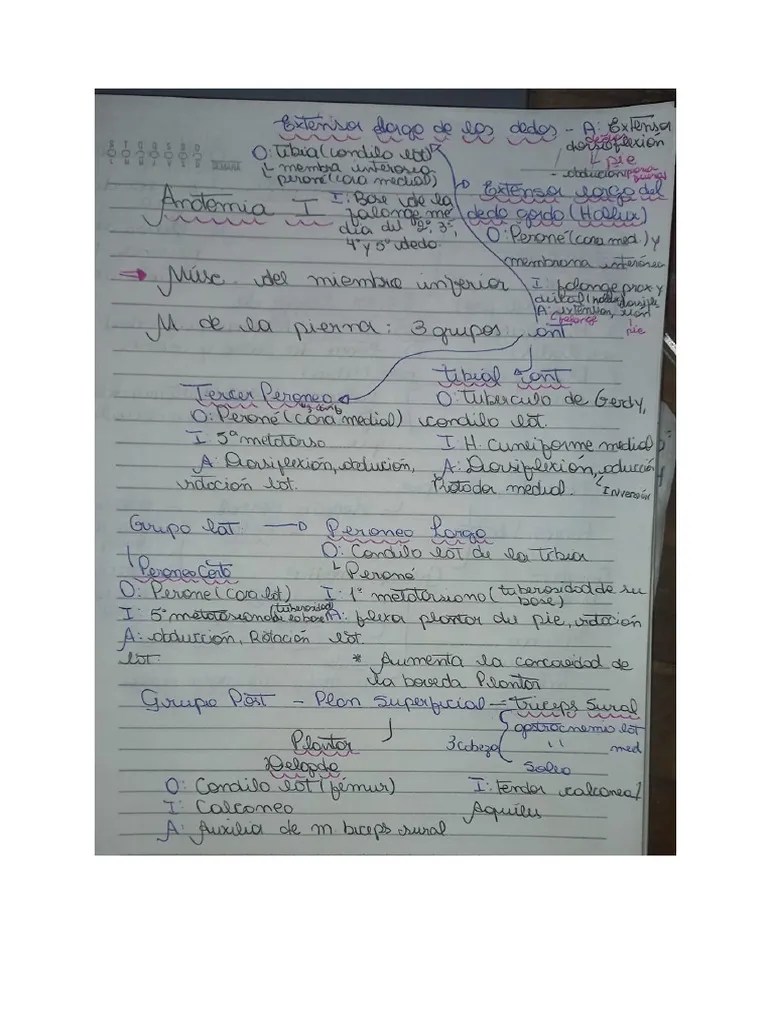 Extensor largo de los dedos - A: Extensor
dedos
dorsiflexion
pie
- abducion
O: Tibia (condilo lat)
membra interosea
peroné (cara medial)
I: Base de la
falange me
dia del 2º, 3º,
4º y 5º dedo.
Extensor largo del
dedo gordo (Hallux)
O: Peroné (cara med.) y
membrana interósea
I: falange prox y
distal (hallux)
A: extension,
falange
pie
Anatomia I
Musc. del miembro inferior
M de la pierna: 3 grupos ant
Tercer Peroneo
O: Peroné (cara medial)
I: 5º metatarso
A: Dorsiflexión, abdución,
rotación lat.
Tibial ant
O: Tuberculo de Gerdy,
condilo lat.
I: H. Cuneiforme medial
A: Dorsiflexión, aducción
Rotador medial.
Inversión
Grupo lat
Peroneo Largo
O: Condilo lat de la Tibia
Peroné
I: 1º metatarsiano (tuberosidad de su
base)
A: flexa plantar du pie, rotación
lat
* Aumenta la concavidad de
la boveda Plantar
Peroneo Corto
O: Peroné (cara lat)
I: 5º metatarsiano (tuberosidad
de la base)
A: abducción, Rotación
lat.
Grupo Post - Plan Superficial = Triceps Sural
3 cabeza
gastrocnemio lat
" med
Soleo
I: Tendon calcaneal
Aquiles
Plantar
Delgado
O: Condilo lat (fémur)
I: Calcaneo
A: Auxilia de m biceps sural